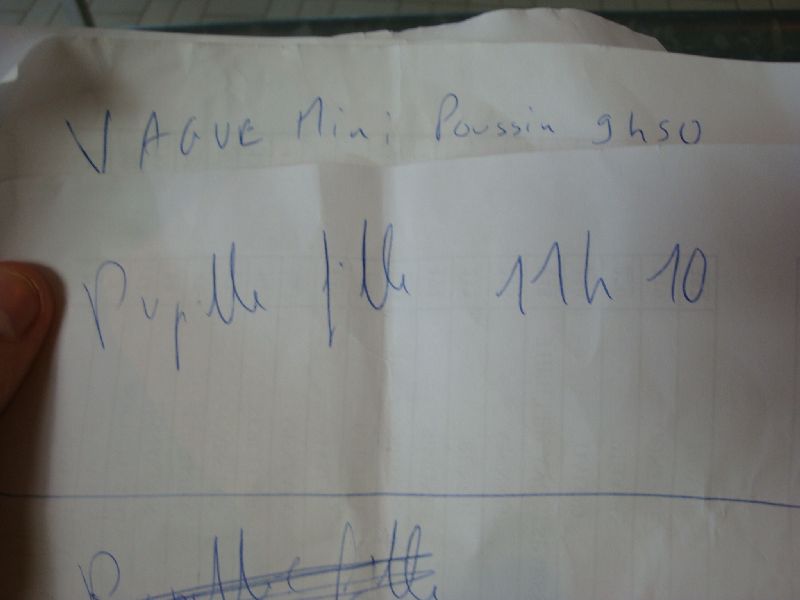 VAGUE Mini Poussin 9h50
Pupille fille 11h 10
Pupille fille